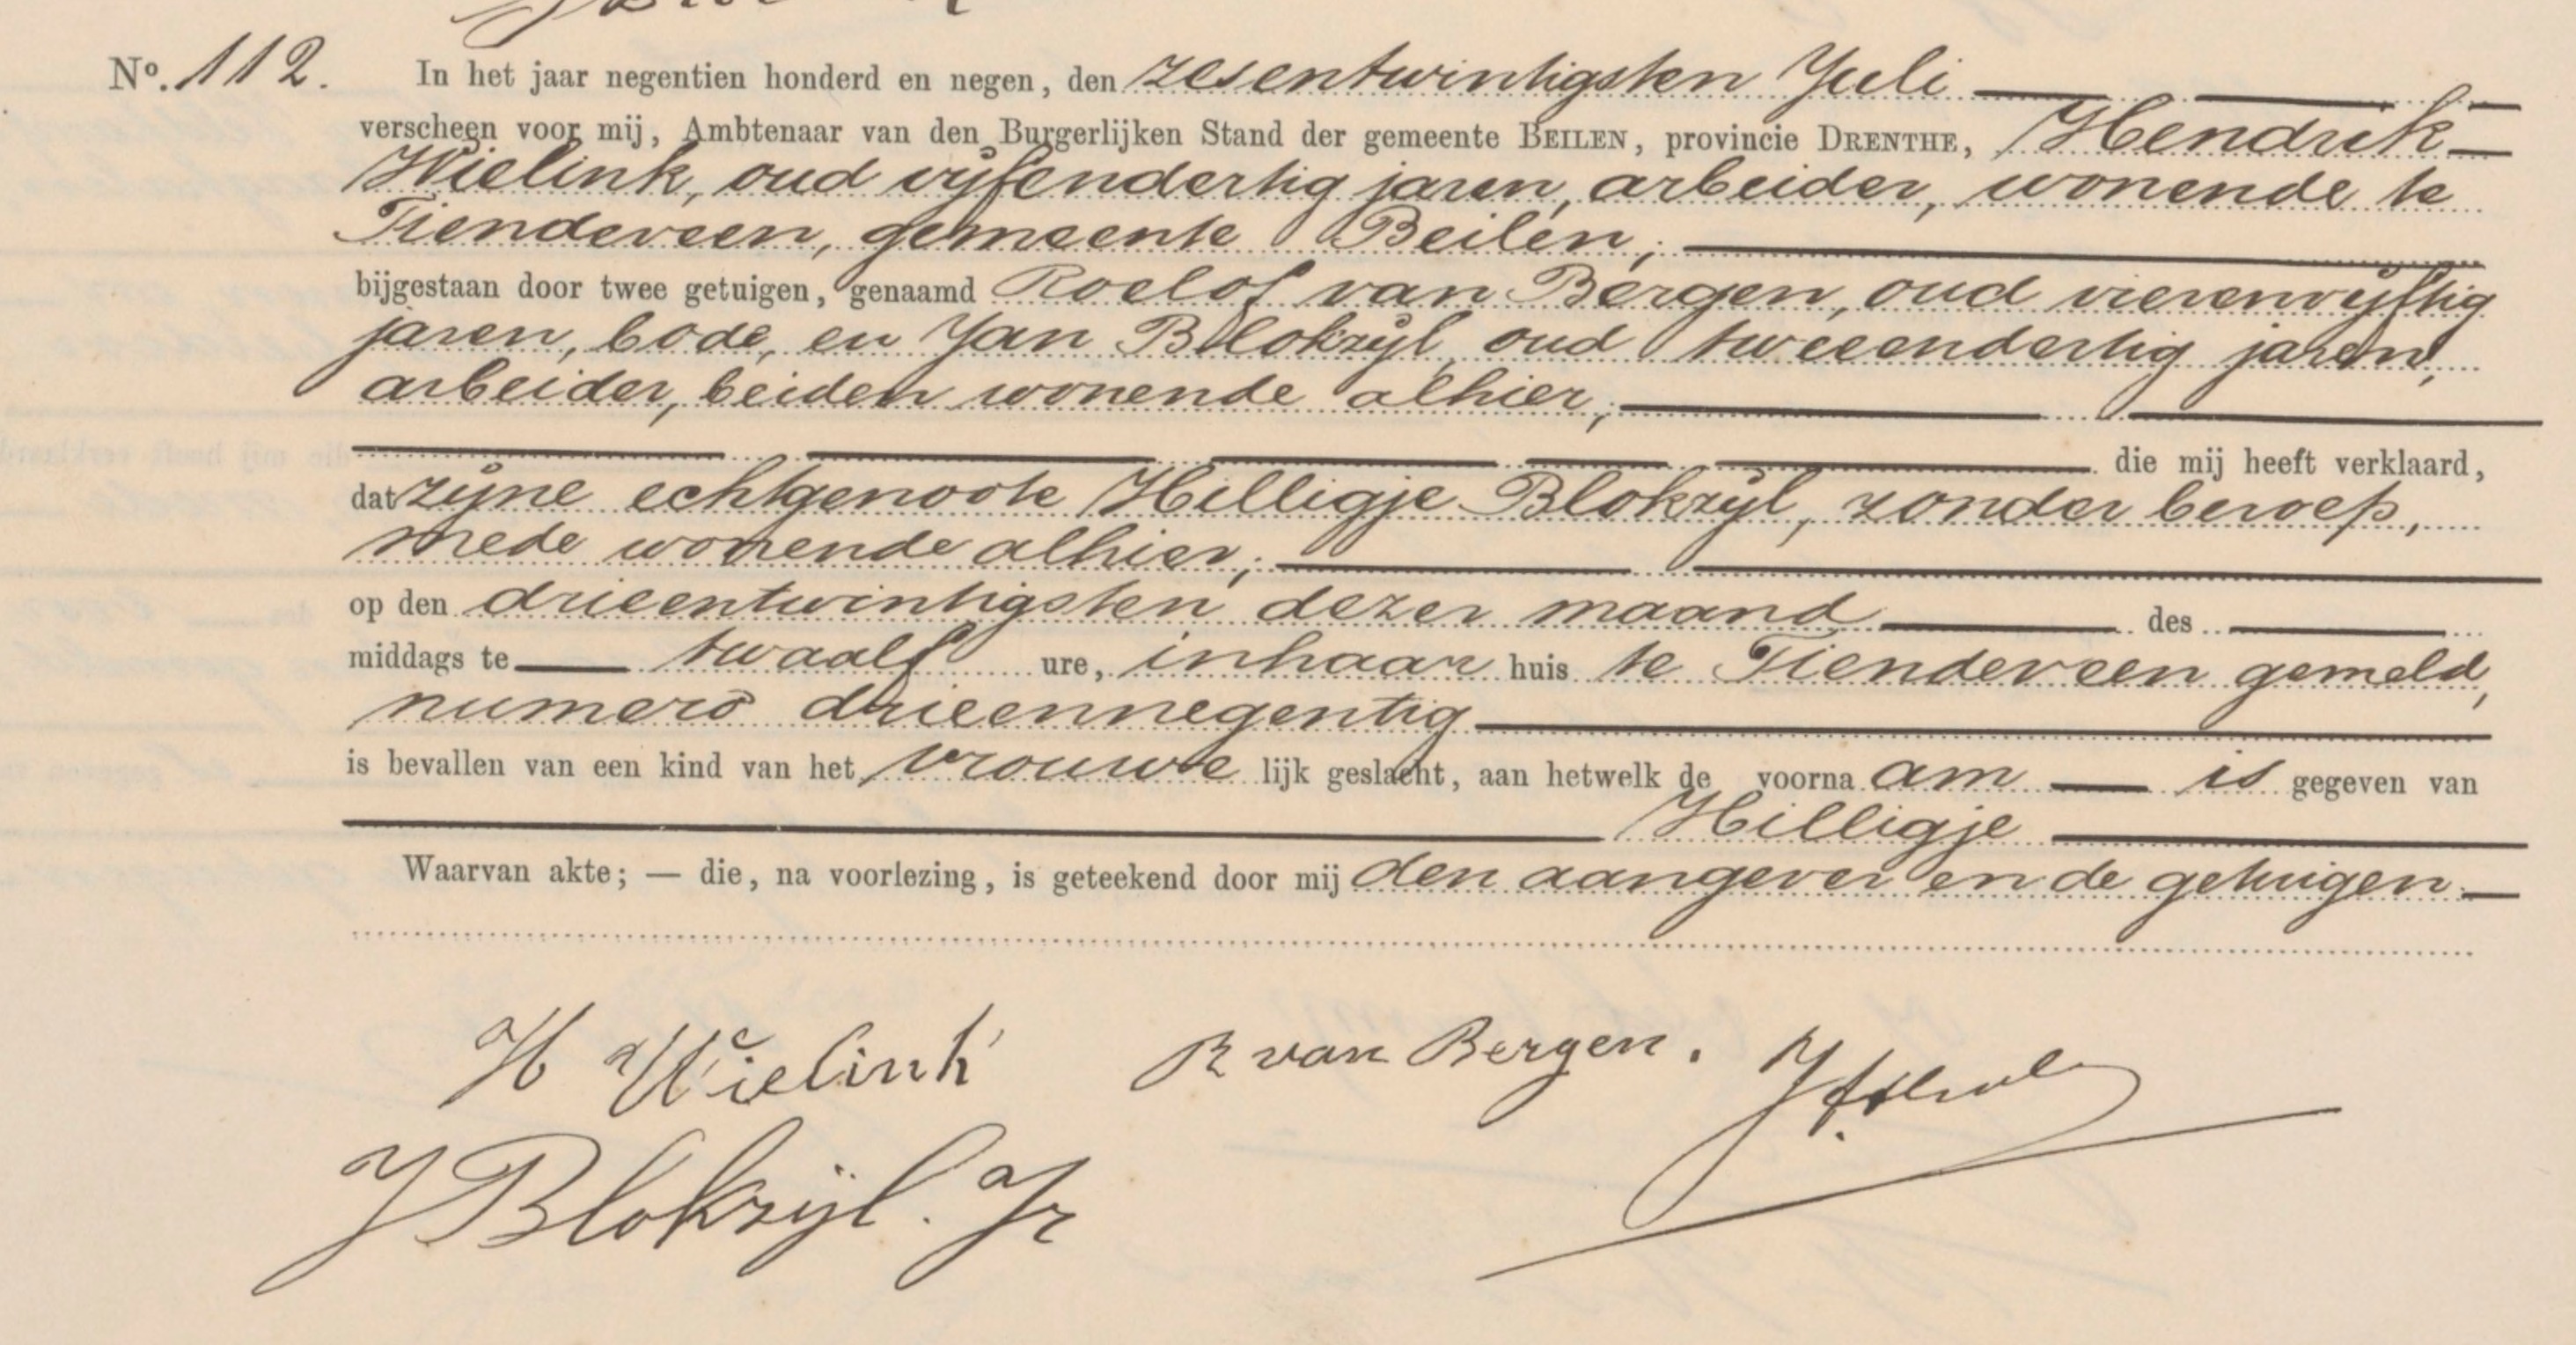 No. 112. In het jaar negentien honderd en negen, den zesentwintigsten Juli
verscheen voor mij, Ambtenaar van den Burgerlijken Stand der gemeente BEILEN, provincie DRENTHE, Hendrik
Wielink, oud vijfendertig jaren, arbeider, wonende te
Tiendeveen, gemeente Beilen,
bijgestaan door twee getuigen, genaamd Roelof van Bergen, oud vierenvijftig
jaren, bode, en Jan Blokzijl, oud tweeendertig jaren,
arbeider, beiden wonende alhier,
die mij heeft verklaard,
dat zijne echtgenoote Hilligje Blokzijl, zonder beroep,
mede wonende alhier,
op den drieentwintigsten dezer maand des
middags te twaalf ure, in haar huis te Tiendeveen gemeld,
numero drieennegentig
is bevallen van een kind van het vrouwe lijk geslacht, aan hetwelk de voorna am is gegeven van
Hilligje
Waarvan akte; — die, na voorlezing, is geteekend door mij den aangever en de getuigen.
H Wielink R van Bergen.
J Blokzijl. Jr